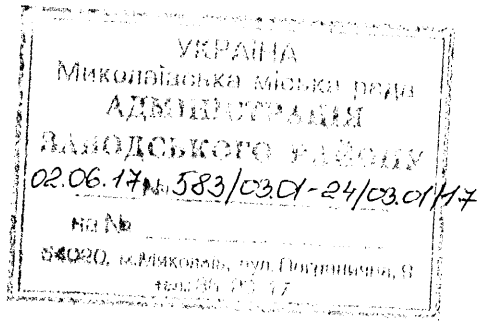 УКРАЇНА
Миколаївська міська рада
АДМІНІСТРАЦІЯ
ЗАВОДСЬКОГО РАЙОНУ
02.06.17 № 583/03.01-24/03.01/17
на №
м.Миколаїв, вул. Погранична, 9
тел.